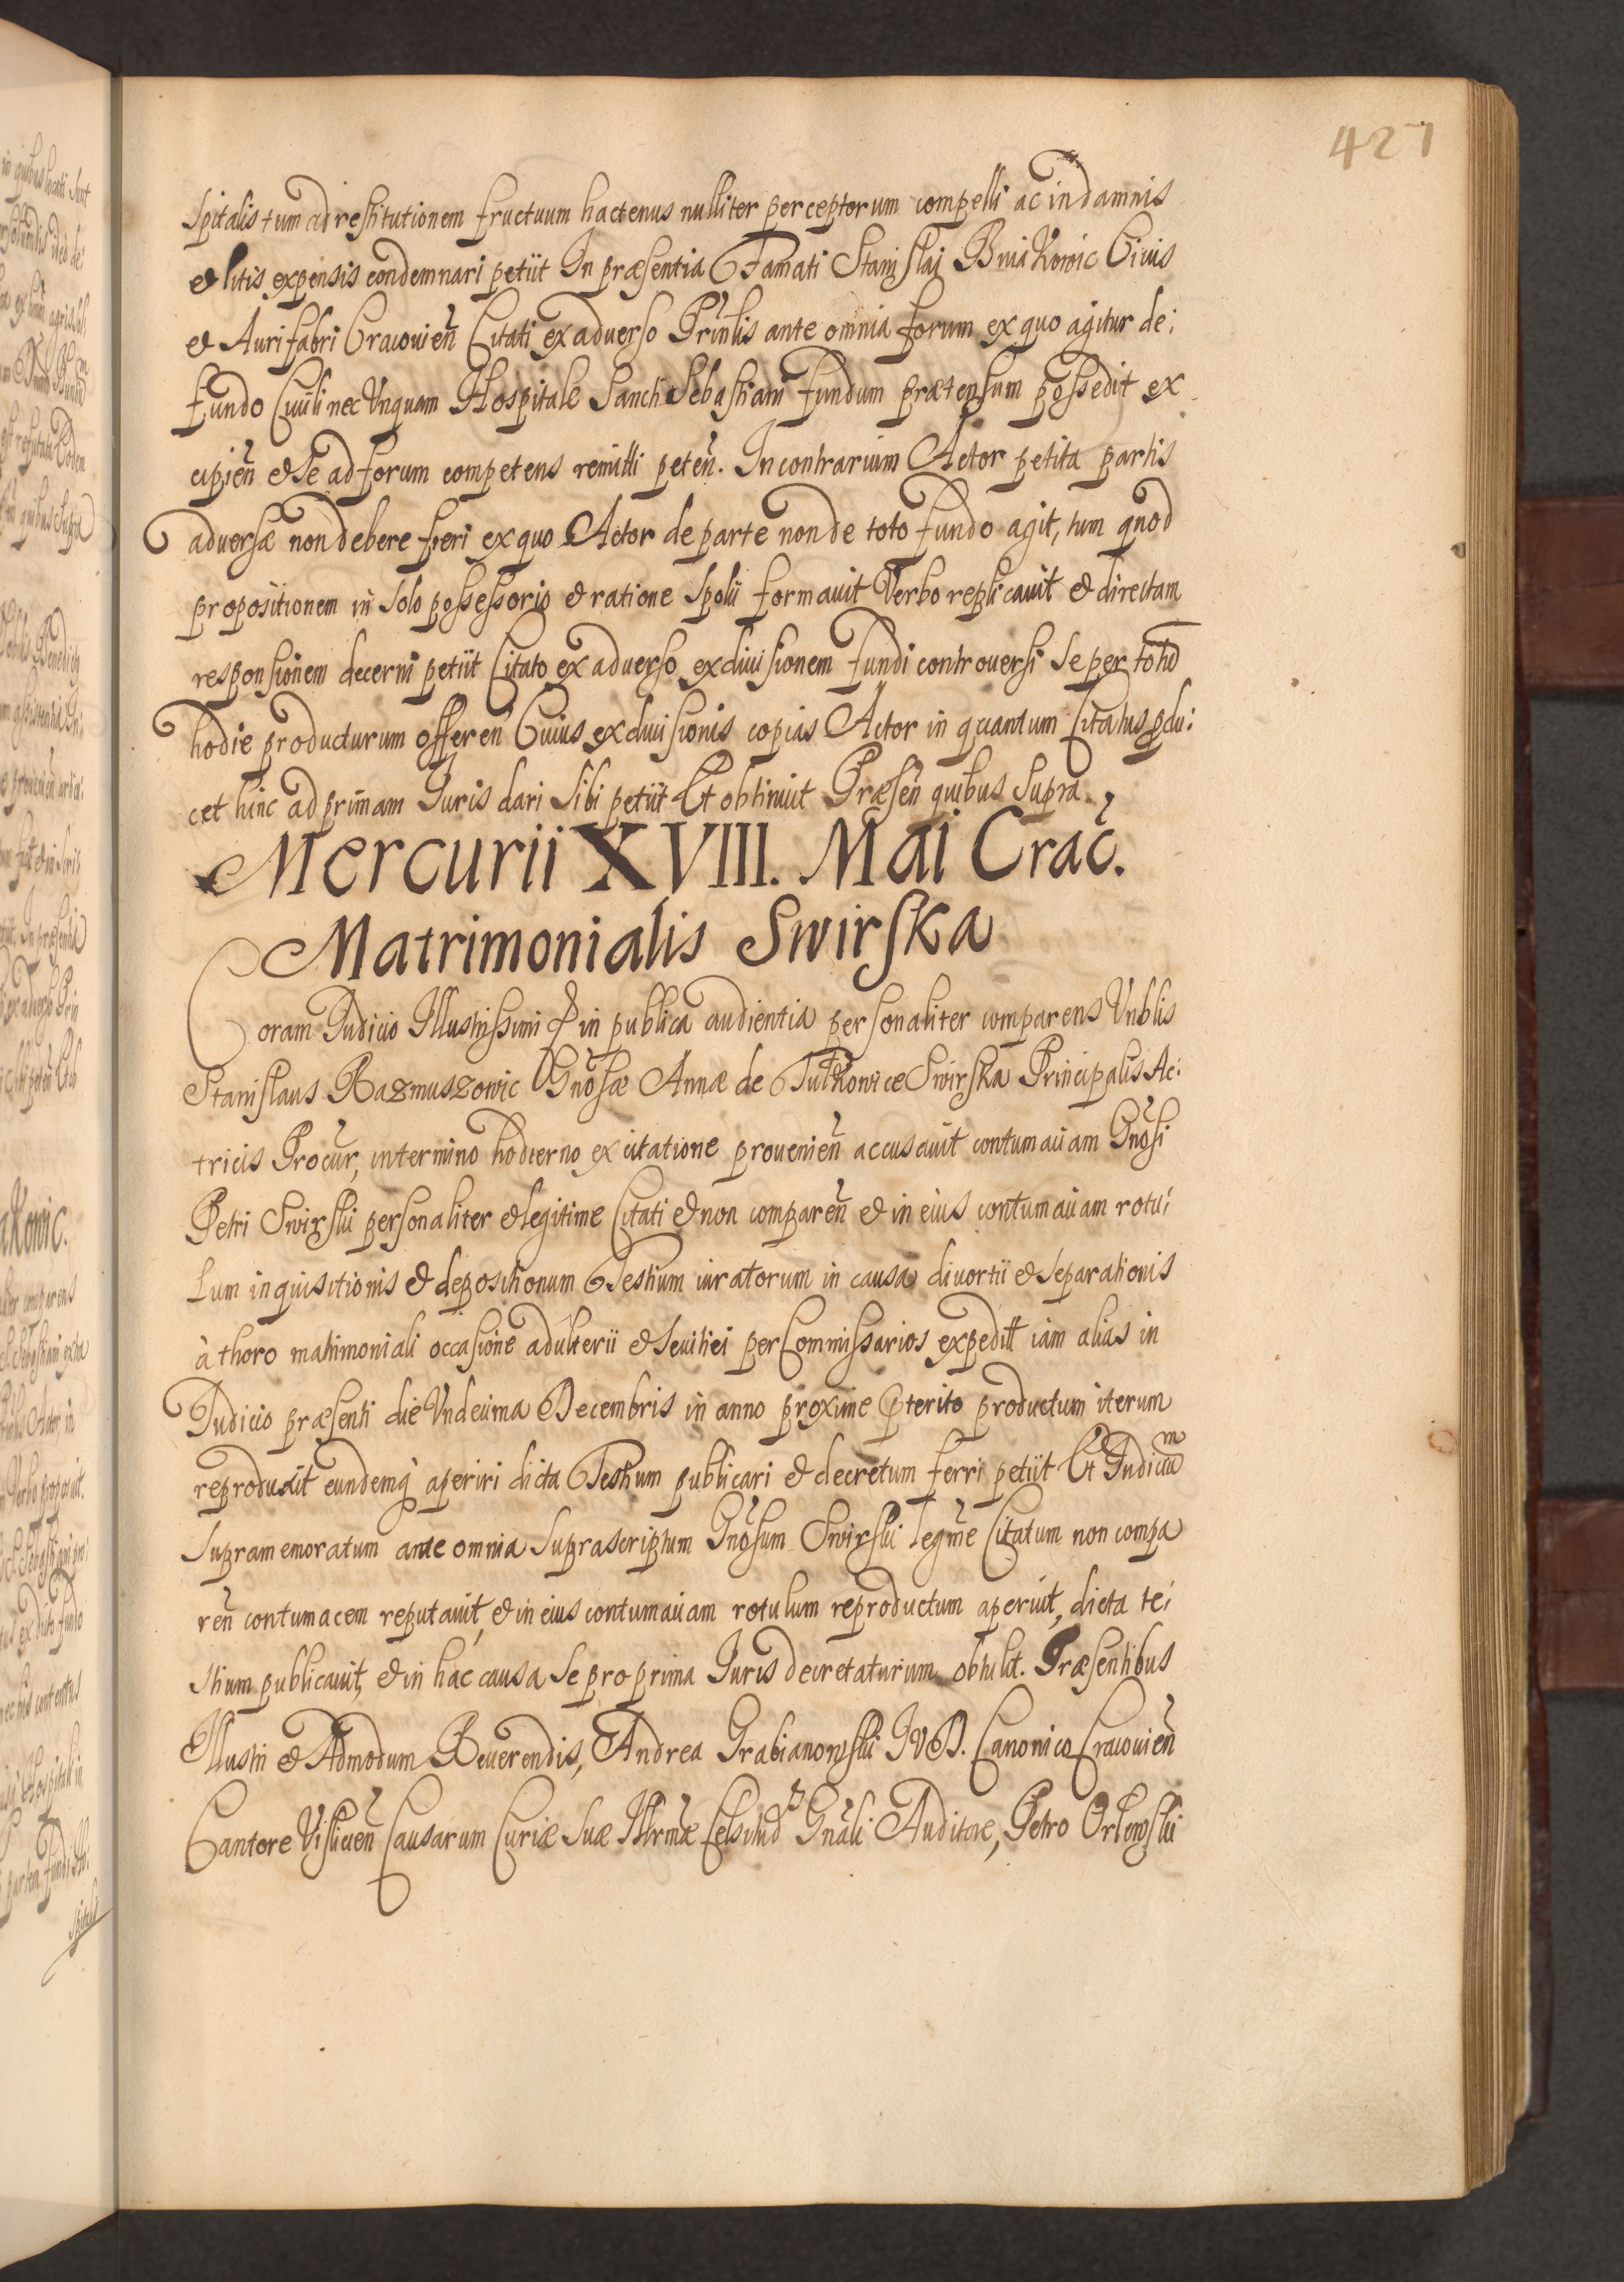 427
spitalis tum ad restitutionem fructuum hactenus nulliter perceptorum compelli ac in damnis
& litis expensis condemnari petiit In præsentia Famati Stanislai Ciuis
& Aurifabri Cracouien̄ Citati ex aduerso Prin̄lis ante omnia forum ex quo agitur de:
fundo Ciuili nec Vnquam Hospitale Sancti Sebastiani fundum prætensum possedit ex
cipien̄ & se ad forum competens remitti peten̄. In contrarium Actor petita partis
aduersæ non debere fieri ex quo Actor de parte non de toto fundo agit, tum quod
propositionem in solo possessorio & ratione spolii formauit Verbo replicauit & directam
responsionem decerni petiit Citato ex aduerso exdiuisionem fundi controuersi se per totū
hodie producturum offeren̄ Cuius exdiuisionis copias Actor in quantum Citatus ꝓdu:
cet hinc ad primam Juris dari sibi petiit Et obtinuit Præsen̄ quibus supra.
Mercurii XVIII. Mai Crac̄.
Matrimonialis Swirska
Coram Judicio Illustrissimi & in publica audientia personaliter comparens Nnblis
Stanislaus Razmuszowic Gn̄osæ Annæ de Swirska Principalis Ac:
tricis Procur̄, in termino hodierno ex citatione prouenien̄ accusauit contumaciam Gn̄osi
Petri Swirski personaliter & legitime Citati & non comparen̄ & in eius contumaciam rotu:
lum inquisitionis & depositionum Testium iuratorum in causa diuortii & separationis
à thoro matrimoniali occasione adulterii & seuitiei per Commissarios expedit iam alias in
Judicio præsenti die Vndecima Decembris in anno proxime p̄terito productum iterum
reproduxit eundemq́ aperiri dicta Testium publicari & decretum ferri petiit Et Judiciū
supramemoratum ante omnia suprascriptum Gn̄osum Swirski legīme Citatum non compa
ren̄ contumacem reputauit, & in eius contumaciam rotulum reproductum aperuit, dicta te:
stium publicauit, & in hac causa se pro prima Juris decretaturum obtulit. Præsentibus
Illustri & Admodum Reuerendis, Andrea Grabianowski JVD. Canonico Cracouien̄
Cantore Vislicien̄ Causarum Curiæ suæ Illrmæ Celsitud Gn̄ali Auditore, Petro Orlewski